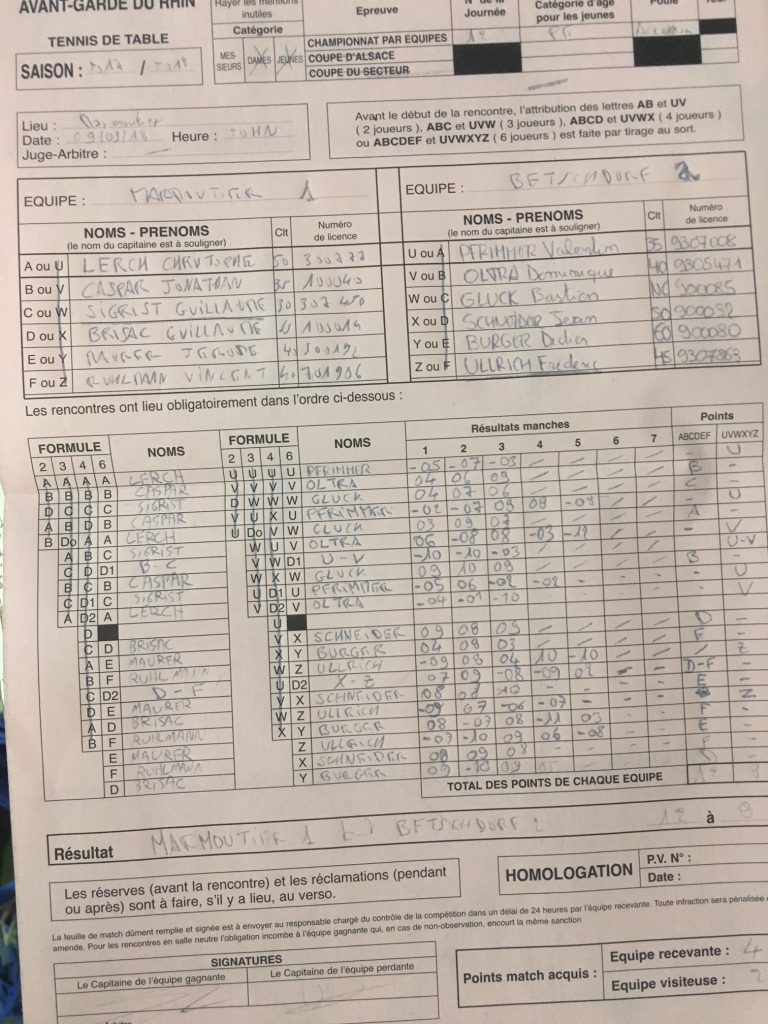 AVANT-GARDE DU RHIN
TENNIS DE TABLE
SAISON : /
Rayer les mentions inutiles
Catégorie
MES-SIEURS DAMES JEUNES
Epreuve
CHAMPIONNAT PAR EQUIPES
COUPE D'ALSACE
COUPE DU SECTEUR
N° de la Journée
12
Catégorie d'âge pour les jeunes
Lieu :
Date : 09/03/18 Heure :
Juge-Arbitre :
Avant le début de la rencontre, l'attribution des lettres AB et UV
( 2 joueurs ), ABC et UVW ( 3 joueurs ), ABCD et UVWX ( 4 joueurs )
ou ABCDEF et UVWXYZ ( 6 joueurs ) est faite par tirage au sort.
EQUIPE : MARMOUTIER 1
NOMS - PRENOMS Clt Numéro de licence
(le nom du capitaine est à souligner)
A ou U LERCH CHRISTOPHE 50
B ou V CASPAR JONATHAN 35 100040
C ou W SIGRIST GUILLAUME 30
D ou X BRISAC GUILLAUME 100014
E ou Y MAURER JEROME 40
F ou Z RUHLMANN VINCENT 40 701906
EQUIPE : BETSCHDORF 2
NOMS - PRENOMS Clt Numéro de licence
(le nom du capitaine est à souligner)
U ou A PFRIMMER Valentin 35 9307008
V ou B OLTRA Dominique 40 9305471
W ou C GLUCK Bastien NC 900085
X ou D SCHNEIDER Jean 50 900032
Y ou E BURGER Didier 60 900080
Z ou F ULLRICH Frédéric 45 9307363
Les rencontres ont lieu obligatoirement dans l'ordre ci-dessous :
FORMULE NOMS FORMULE NOMS Résultats manches Points
2 3 4 6 2 3 4 6 1 2 3 4 5 6 7 ABCDEF UVWXYZ
A A A A LERCH U U U U PFRIMMER -05 -07 -03 - U
B B B B CASPAR V V V V OLTRA 04 06 09 B -
D C C C SIGRIST D W W W GLUCK 04 07 06 C -
A B D B CASPAR V U X U PFRIMMER -02 -07 09 08 -09 - U
B Do A A LERCH U Do V W GLUCK 03 09 07 A -
A B C SIGRIST W U V OLTRA 06 -08 08 -03 -12 - V
C D D1 B-C V W D1 U-V -10 -10 -03 - U-V
B C B CASPAR W X W GLUCK 09 10 09 B -
C D1 C SIGRIST U D1 U PFRIMMER -05 06 -02 -02 - U
A D2 A LERCH V D2 V OLTRA -04 -01 -10 - V
D U
C D BRISAC V X SCHNEIDER 09 08 09 D
A E MAURER X Y BURGER 04 08 03
B F RUHLMANN W Z ULLRICH -09 08 04 10 -10 Z
C D2 D-F U D2 X-Z 07 09 -08 -09 02 D-F
D E MAURER V X SCHNEIDER 08 10 E
A D BRISAC W Z ULLRICH -09 07 -06 -07 Z
B F RUHLMANN X Y BURGER 08 -07 08 -11 03 F
E MAURER Z ULLRICH -07 -10 09 06 -08
F RUHLMANN X SCHNEIDER 08 09 08 F
D BRISAC Y BURGER 09 -10 09 05
TOTAL DES POINTS DE CHAQUE EQUIPE 12
Résultat MARMOUTIER 1 BETSCHDORF 2 12 à
Les réserves (avant la rencontre) et les réclamations (pendant
ou après) sont à faire, s'il y a lieu, au verso.
HOMOLOGATION
P.V. N° :
Date :
La feuille de match dûment remplie et signée est à envoyer au responsable chargé du contrôle de la compétition dans un délai de 24 heures par l'équipe recevante. Toute infraction sera pénalisée
amende. Pour les rencontres en salle neutre l'obligation incombe à l'équipe gagnante qui, en cas de non-observation, encourt la même sanction
SIGNATURES
Le Capitaine de l'équipe gagnante Le Capitaine de l'équipe perdante
Points match acquis :
Equipe recevante : 4
Equipe visiteuse : 2